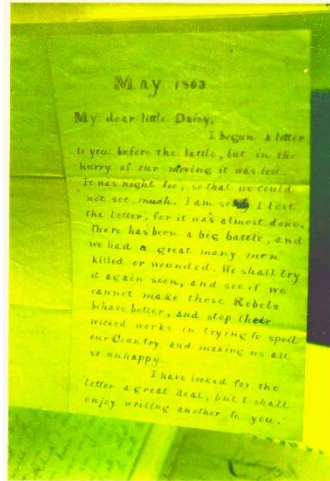 May 1863
My dear little Daisy,
I begun a letter
to you before the battle, but in the
hurry of our moving it was lost.
It was night too, so that we could
not see much. I am I lost
the letter, for it was almost done.
There has been a big battle, and
we had a great many men
killed or wounded. We shall try
it again soon, and see if we
cannot make those Rebels
behave better, and stop their
wicked works in trying to spoil
our Country and making us all
so unhappy.
I have looked for the
letter a great deal, but I shall
enjoy writing another to you.